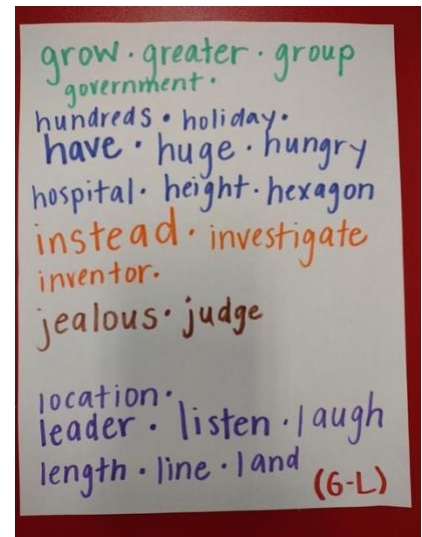 grow · greater · group
government ·
hundreds · holiday ·
have · huge · hungry
hospital · height · hexagon
instead · investigate
inventor ·
jealous · judge
location ·
leader · listen · laugh
length · line · land
(G-L)